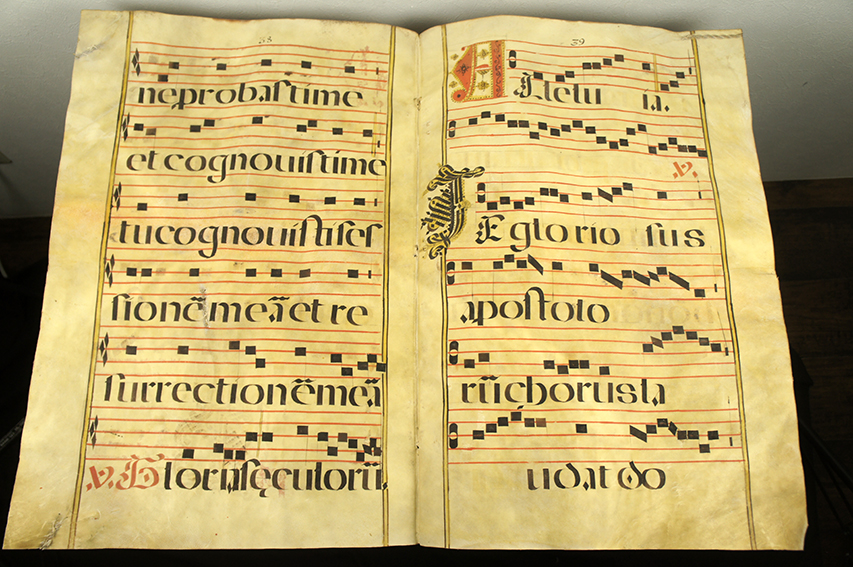 38
ne probasti me
et cognovisti me
tu cognovisti ses
sionē meā et re
surrectionē meā
℣. Gloria sęculorū.
39
Alleluia.
℣.
TE glorio sus
apostolo
rū chorus la
udat do